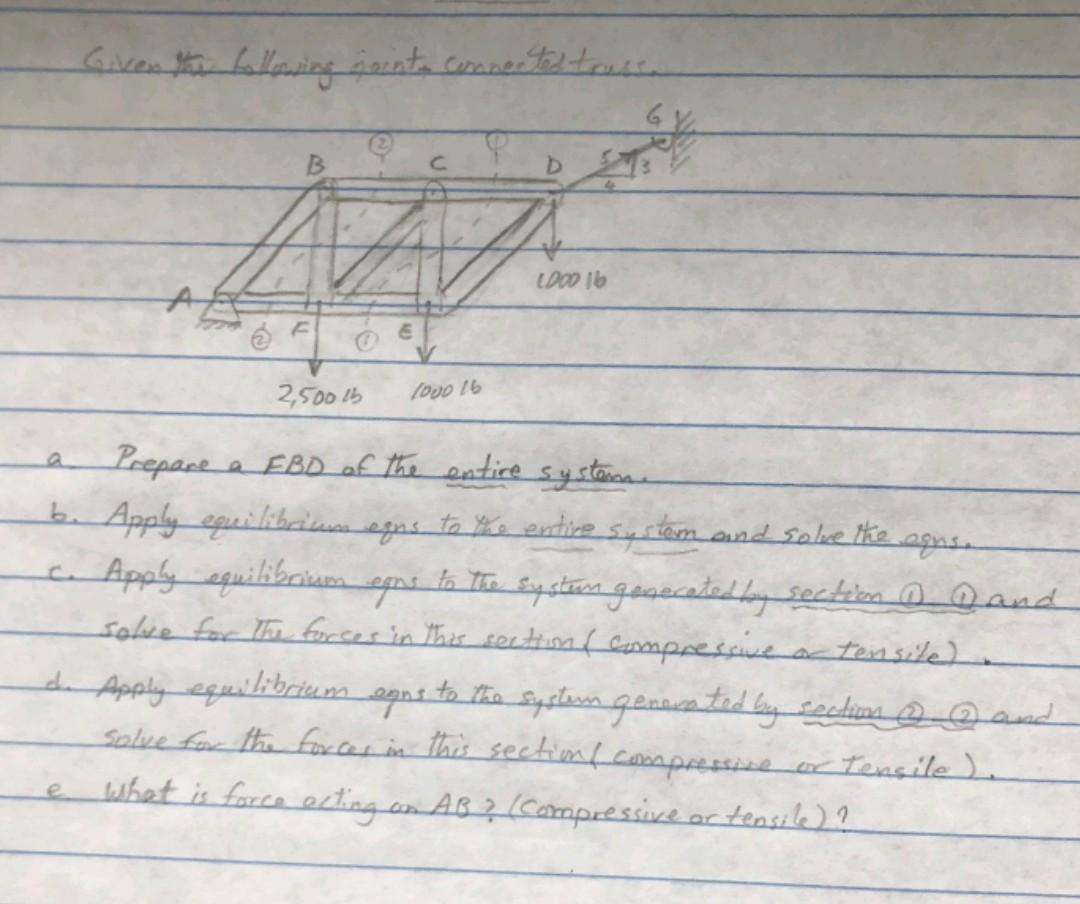 Given the following joint connected truss.
G
② ①
B C D 5 3
4
1000 lb
A
② F ① E
2,500 lb 1000 lb
a. Prepare a FBD of the entire system.
b. Apply equilibrium eqns to the entire system and solve the eqns.
c. Apply equilibrium eqns to the system generated by section ① ① and
solve for the forces in this section (compressive or tensile).
d. Apply equilibrium eqns to the system generated by section ② ② and
solve for the forces in this section (compressive or tensile).
e What is force acting on AB? (compressive or tensile)?